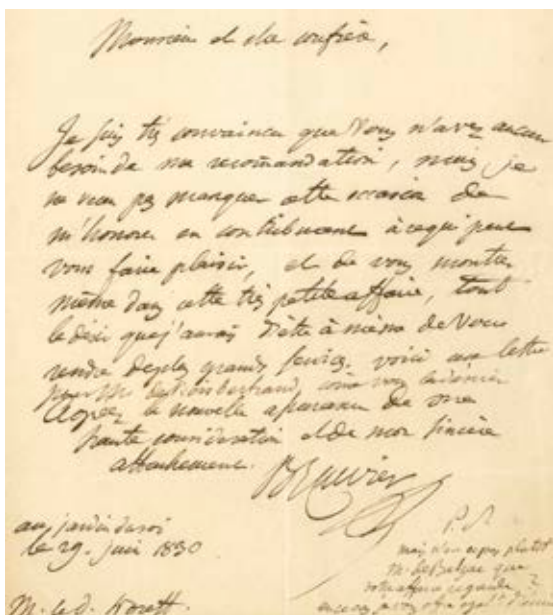 Monsieur et cher confrère,
Je suis très convaincu que vous n'avez aucun
besoin de ma recommandation, mais je
ne veux pas manquer cette occasion de
m'honorer en contribuant à ce qui peut
vous faire plaisir, et de vous montrer
même dans cette très petite affaire, tout
le désir que j'aurais d'être à même de vous
rendre de plus grands services. voici une lettre
pour Mr.
Agréez la nouvelle assurance de ma
haute considération et de mon sincère
attachement.
B Cuvier
au jardin du roi
le 29. juin 1830
P.S.
mais plutôt
M. que
votre affaire regarde ?
M. le d.